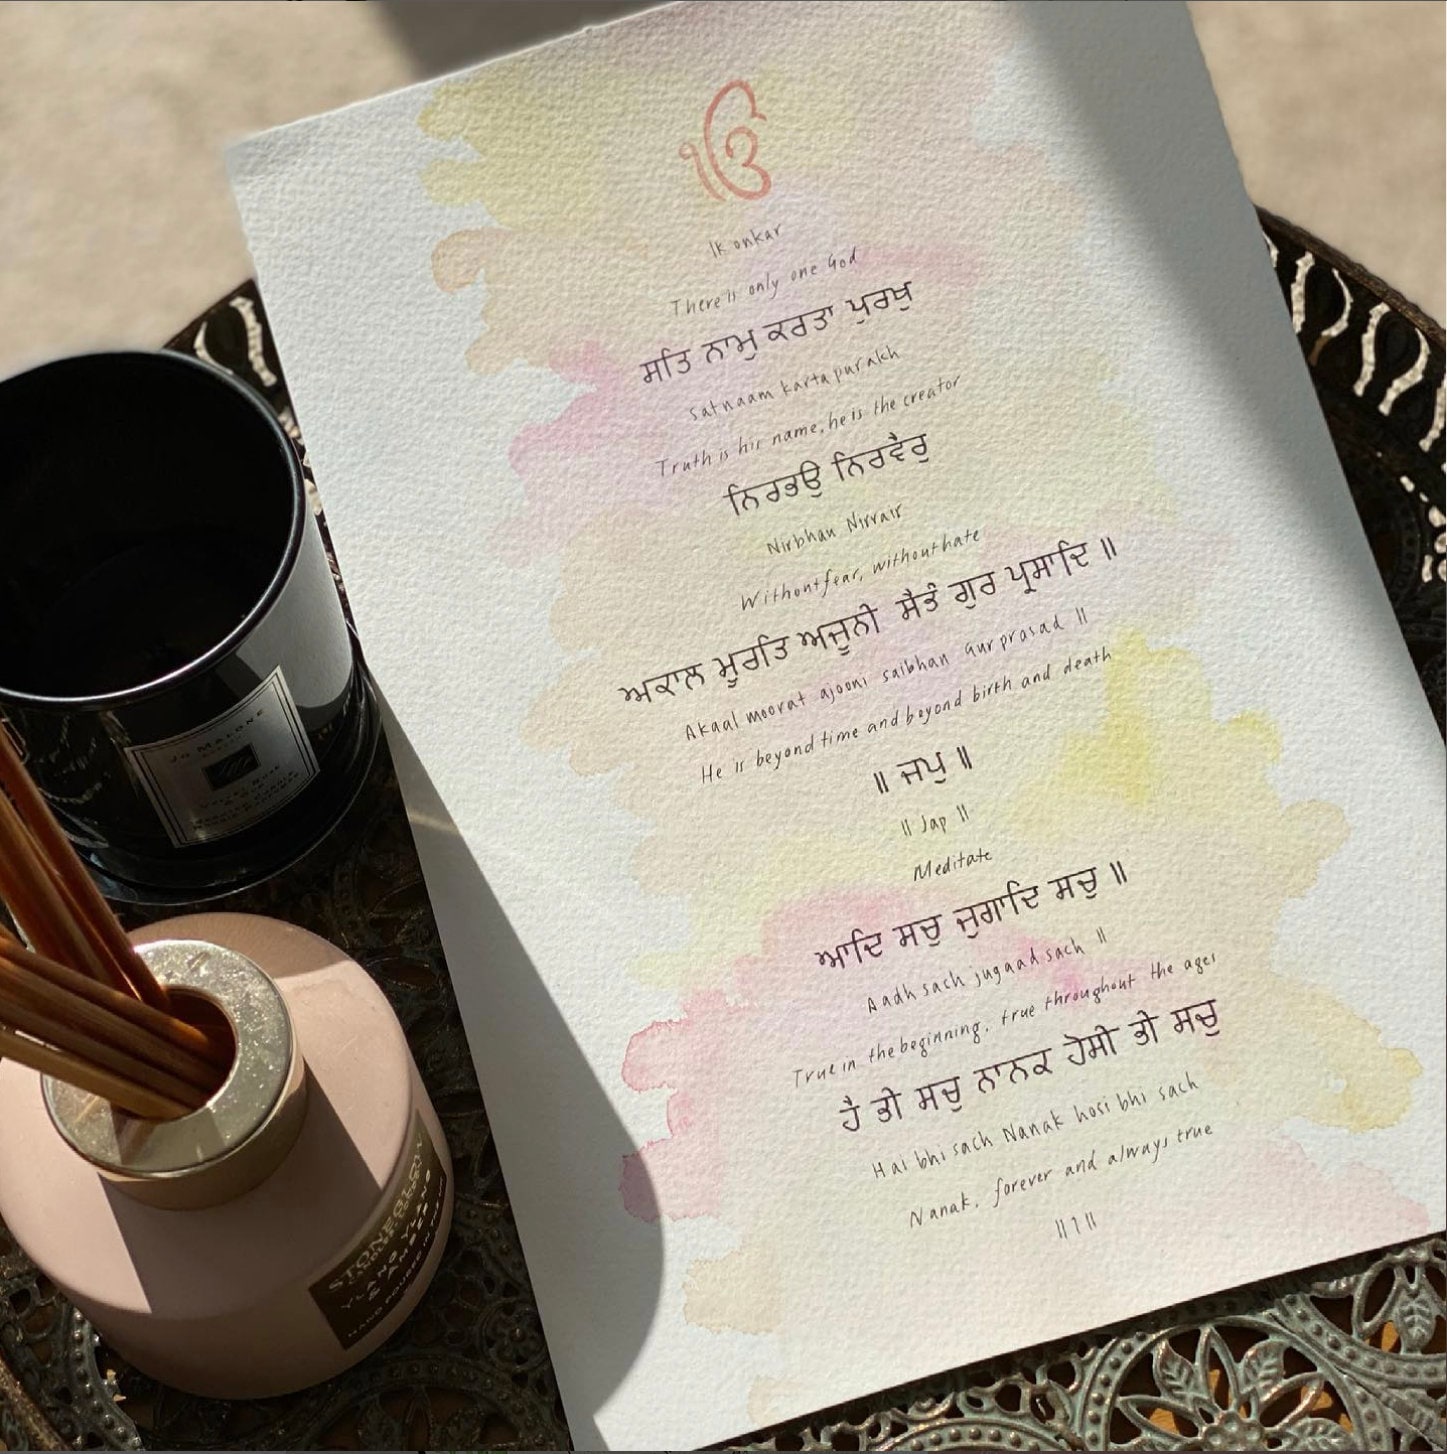 ੴ
Ik onkar
There is only one God
ਸਤਿ ਨਾਮੁ ਕਰਤਾ ਪੁਰਖੁ
Satnaam karta purakh
Truth is his name, he is the creator
ਨਿਰਭਉ ਨਿਰਵੈਰੁ
Nirbhau Nirvair
Without fear, without hate
ਅਕਾਲ ਮੂਰਤਿ ਅਜੂਨੀ ਸੈਭੰ ਗੁਰ ਪ੍ਰਸਾਦਿ ॥
Akaal moorat ajooni saibhan Gur prasad ||
He is beyond time and beyond birth and death
॥ ਜਪੁ ॥
|| Jap ||
Meditate
ਆਦਿ ਸਚੁ ਜੁਗਾਦਿ ਸਚੁ ॥
Aadh sach jugaad sach ||
True in the beginning, true throughout the ages
ਹੈ ਭੀ ਸਚੁ ਨਾਨਕ ਹੋਸੀ ਭੀ ਸਚੁ
Hai bhi sach Nanak hosi bhi sach
Nanak, forever and always true
||1||
JO MALONE
STONEGLOW
YLANG YLANG
& AMBER
HAND POURED IN